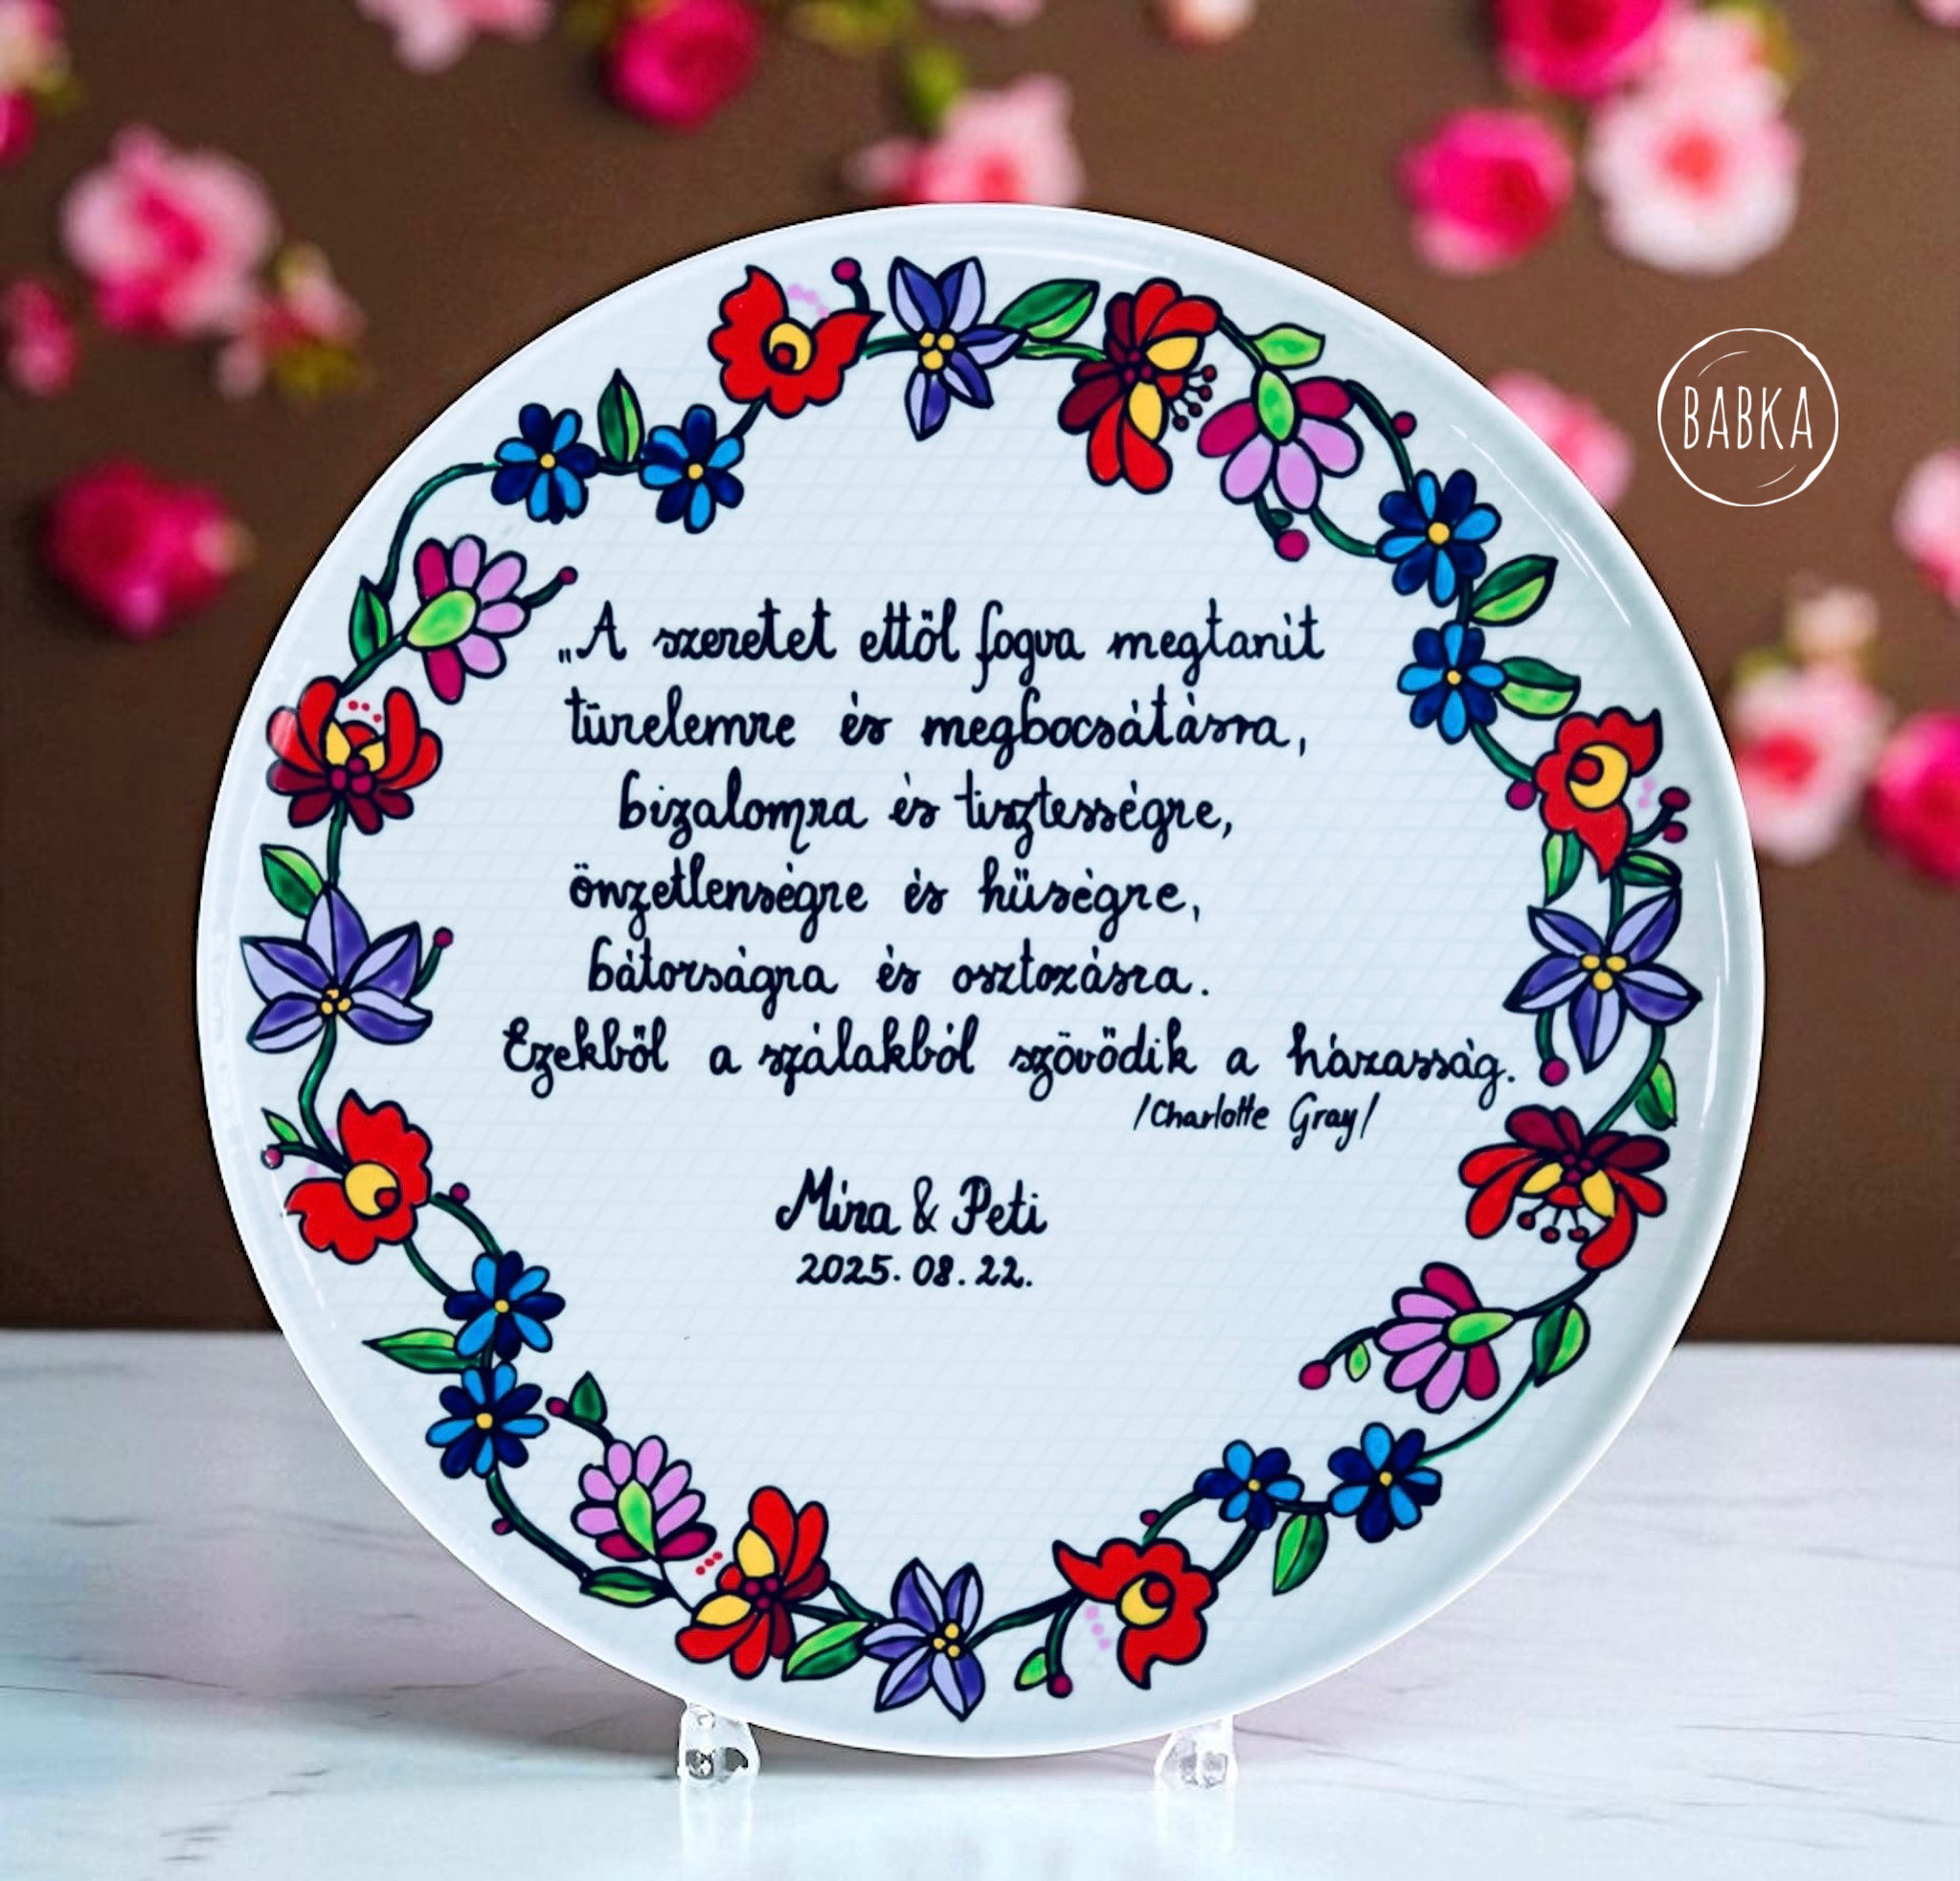 BABKA
„A szeretet ettől fogva megtanít
türelemre és megbocsátásra,
bizalomra és tisztességre,
önzetlenségre és hűségre,
bátorságra és osztozásra.
Ezekből a szálakból szövődik a házasság.
/Charlotte Gray/
Mira & Peti
2025.08.22.